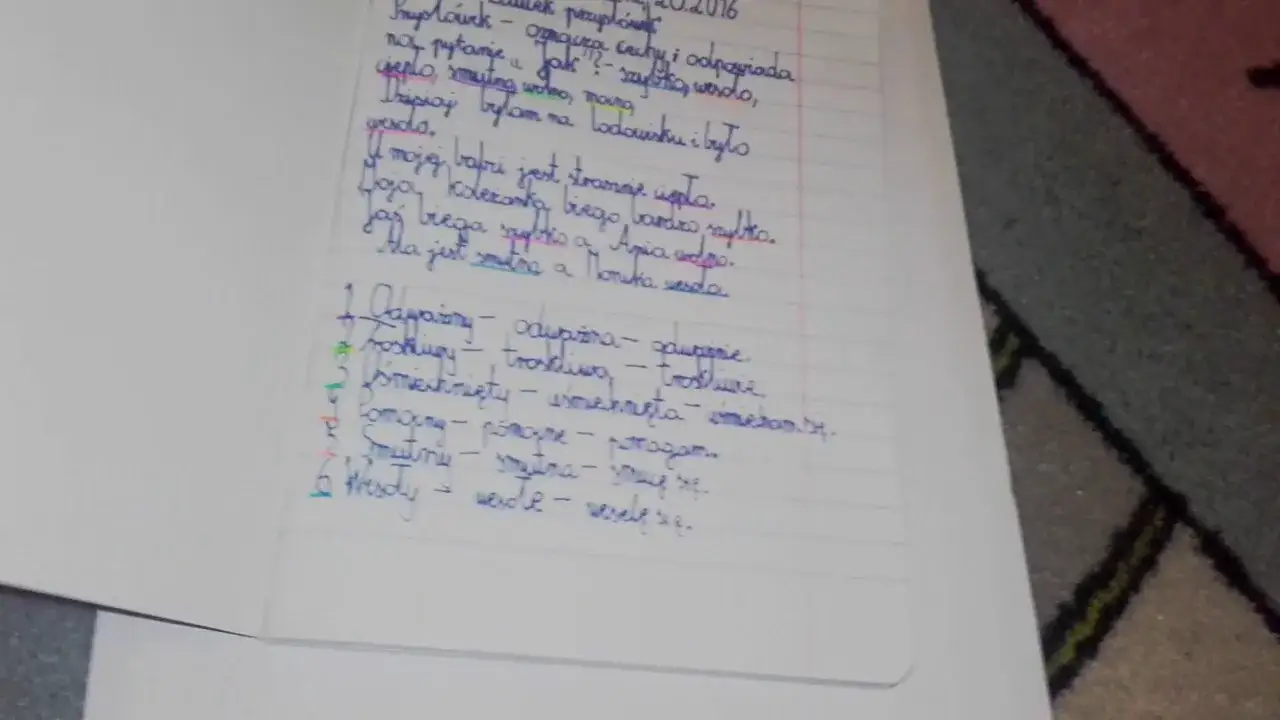 20.2016
przysłówek
Przysłówek - oznacza cechy i odpowiada
na pytanie „Jak"? - szybko, wesoło,
ciepło, smutno, wolno, mocno,
Dzisiaj byłam na lodowisku i było
wesoło.
U mojej babci jest strasznie ciepło.
Moja koleżanka biega bardzo szybko.
Jaś biega szybko a Ania wolno.
Ala jest smutna a Monika wesoła
1 Odważny - odważna - odważnie.
2 Troskliwy - troskliwa - troskliwie
3 Uśmiechnięty - uśmiechnięta - uśmiecham się.
4 Pomocny - pomocne - pomagam.
5 Smutny - smutna - smucę się.
6 Wesoły - wesołe - weselę się.